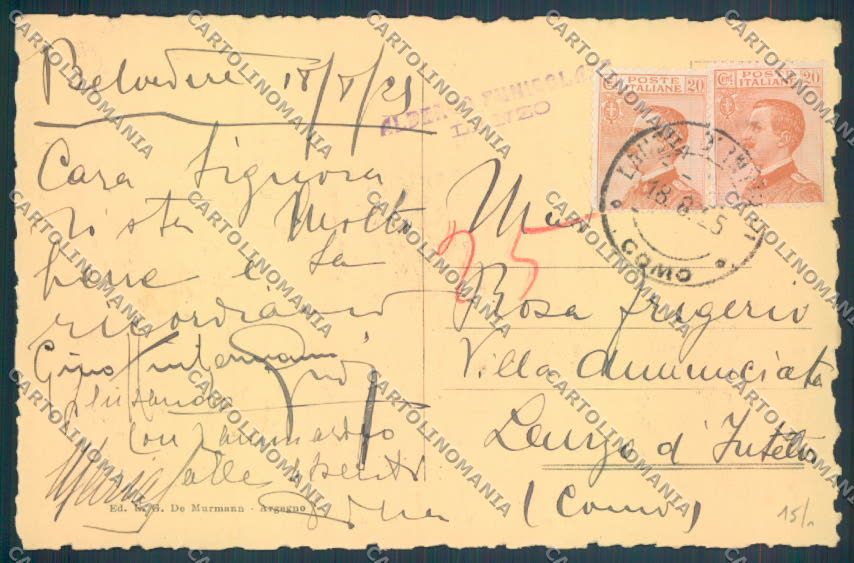 Belvedere 18/8/25
ALBERGO FUNICOLARE
LANZO
Cara Signora
si sta Molto
bene e La
ricordiamo
Gino
con
Maria Valle
Ed. G. De Murmann - Argegno
Cent. POSTE ITALIANE 20
Cent. POSTE ITALIANE 20
LANZO D'INTELVI
18.8.25
COMO
25
Rosa Frigerio
Villa Annunciata
Lanzo d'Intelvi
(Como)
15/-
CARTOLINOMANIA